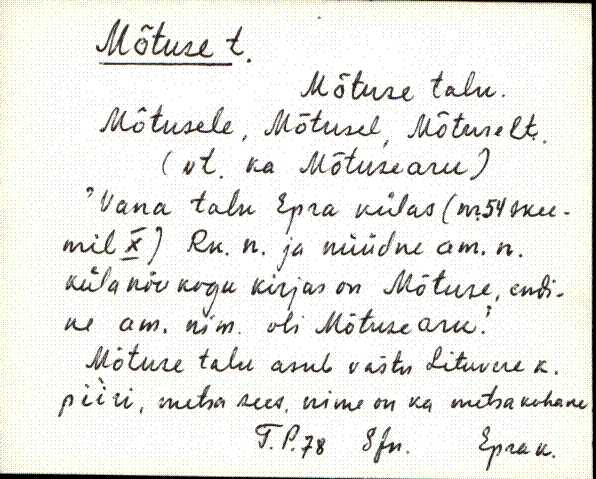 Mõtuse t.
Mõtuse talu.
Mõtusele, Mõtusel, Mõtuselt.
(vt. ka Mõtusearu)
"Vana talu Epra külas (nr. 54 skee-
mil X) Rk. n. ja nüüdne am. n.
külanõukogu kirjas on Mõtuse, endi-
ne am. nim. oli Mõtusearu."
Mõtuse talu asub vastu Lituvere k.
piiri, metsa sees, nime on ka metsakohane
T.P. 78 Sjn. Epra k.